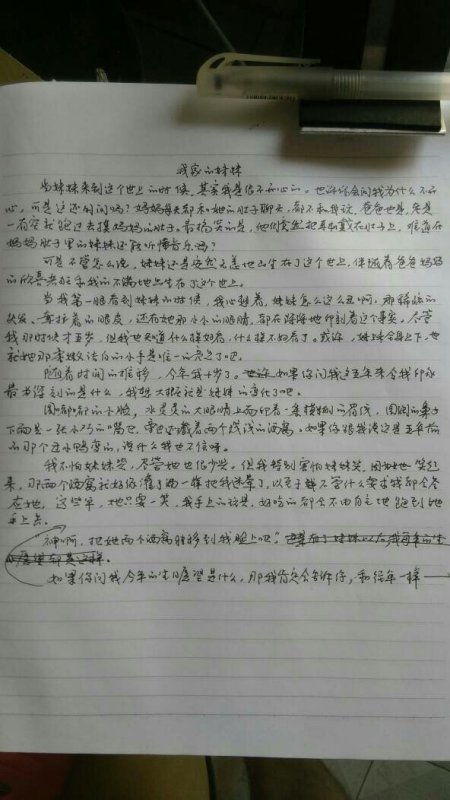 我家的妹妹
当妹妹来到这个世上的时候，其实我是很不开心的。也许你会问我为什么不开
心，可是这还用问吗？妈妈每天都和她的肚子聊天，都不和我说，爸爸也是，老是
一有空就跑过去摸妈妈的肚子。最搞笑的是，他们竟然把耳机戴在肚子上，难道在
妈妈肚子里的妹妹还能听懂音乐吗？
可是不管怎么说，妹妹还是安然无恙地出生在了这个世上，伴随着爸爸妈妈
的欣喜和我的不满地出生在了这个世上。
当我第一眼看到妹妹的时候，我心想着，妹妹怎么这么丑啊，那稀疏的
头发，耷拉着的眼皮，还有她那小小的眼睛，都在深深地印刻着这个事实。尽管
我那时候才五岁，但我也知道什么样好看，什么样不好看了。或许，妹妹全身上下，也
就她那拿嫩洁白的小手是唯一的亮点了吧。
随着时间的推移，今年我十岁了。如果你问我这五年来令我印象
最为深刻的是什么，我想大概就是妹妹的变化了吧。
圆嘟嘟的小脸，水灵灵的大眼睛上面印着一条搂搂的眉线，圆圆的鼻子
下面是一张小巧的嘴巴，旁边还藏着两个浅浅的酒窝。如果你跟我说这是五年前
的那个丑小鸭变的，说什么我也不信呀。
我不怕妹妹哭，尽管她也很少哭。但我特别害怕妹妹笑，笑起
来，那两个酒窝就好像灌了酒一样把我迷晕了，以至于无论什么要求我都会答
应她，这些年，她只要一笑，我手上的玩具，好吃的都会不由自主地跑到她
手上去。
神啊，把她两个酒窝转移到我脸上吧！
如果你问我今年的生日愿望是什么，那我肯定会告诉你，和往年一样——